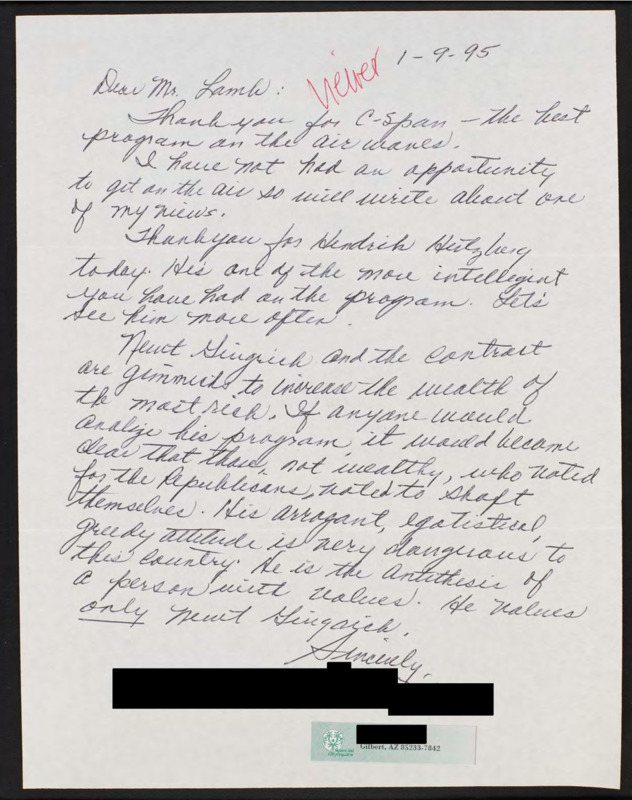 1-9-95
viewer
Dear Mr. Lamb:
Thank you for C-Span — the best
program on the air waves.
I have not had an opportunity
to get on the air so will write about one
of my views.
Thank you for Hendrik Hertzberg
today. His one of the more intellegent
you have had on the program. Let's
see him more often.
Newt Gingrich and the contract
are gimmicks to increase the wealth of
the most rich. If anyone would
analize his program it would become
clear that those, not wealthy, who voted
for the Republicans, voted to shaft
themselves. His arrogant, egotistical,
greedy attitude is very dangerous to
this country. He is the antithesis of
a person with values. He values
only Newt Gingrich.
Sincerely,
Gilbert, AZ 85233-7842